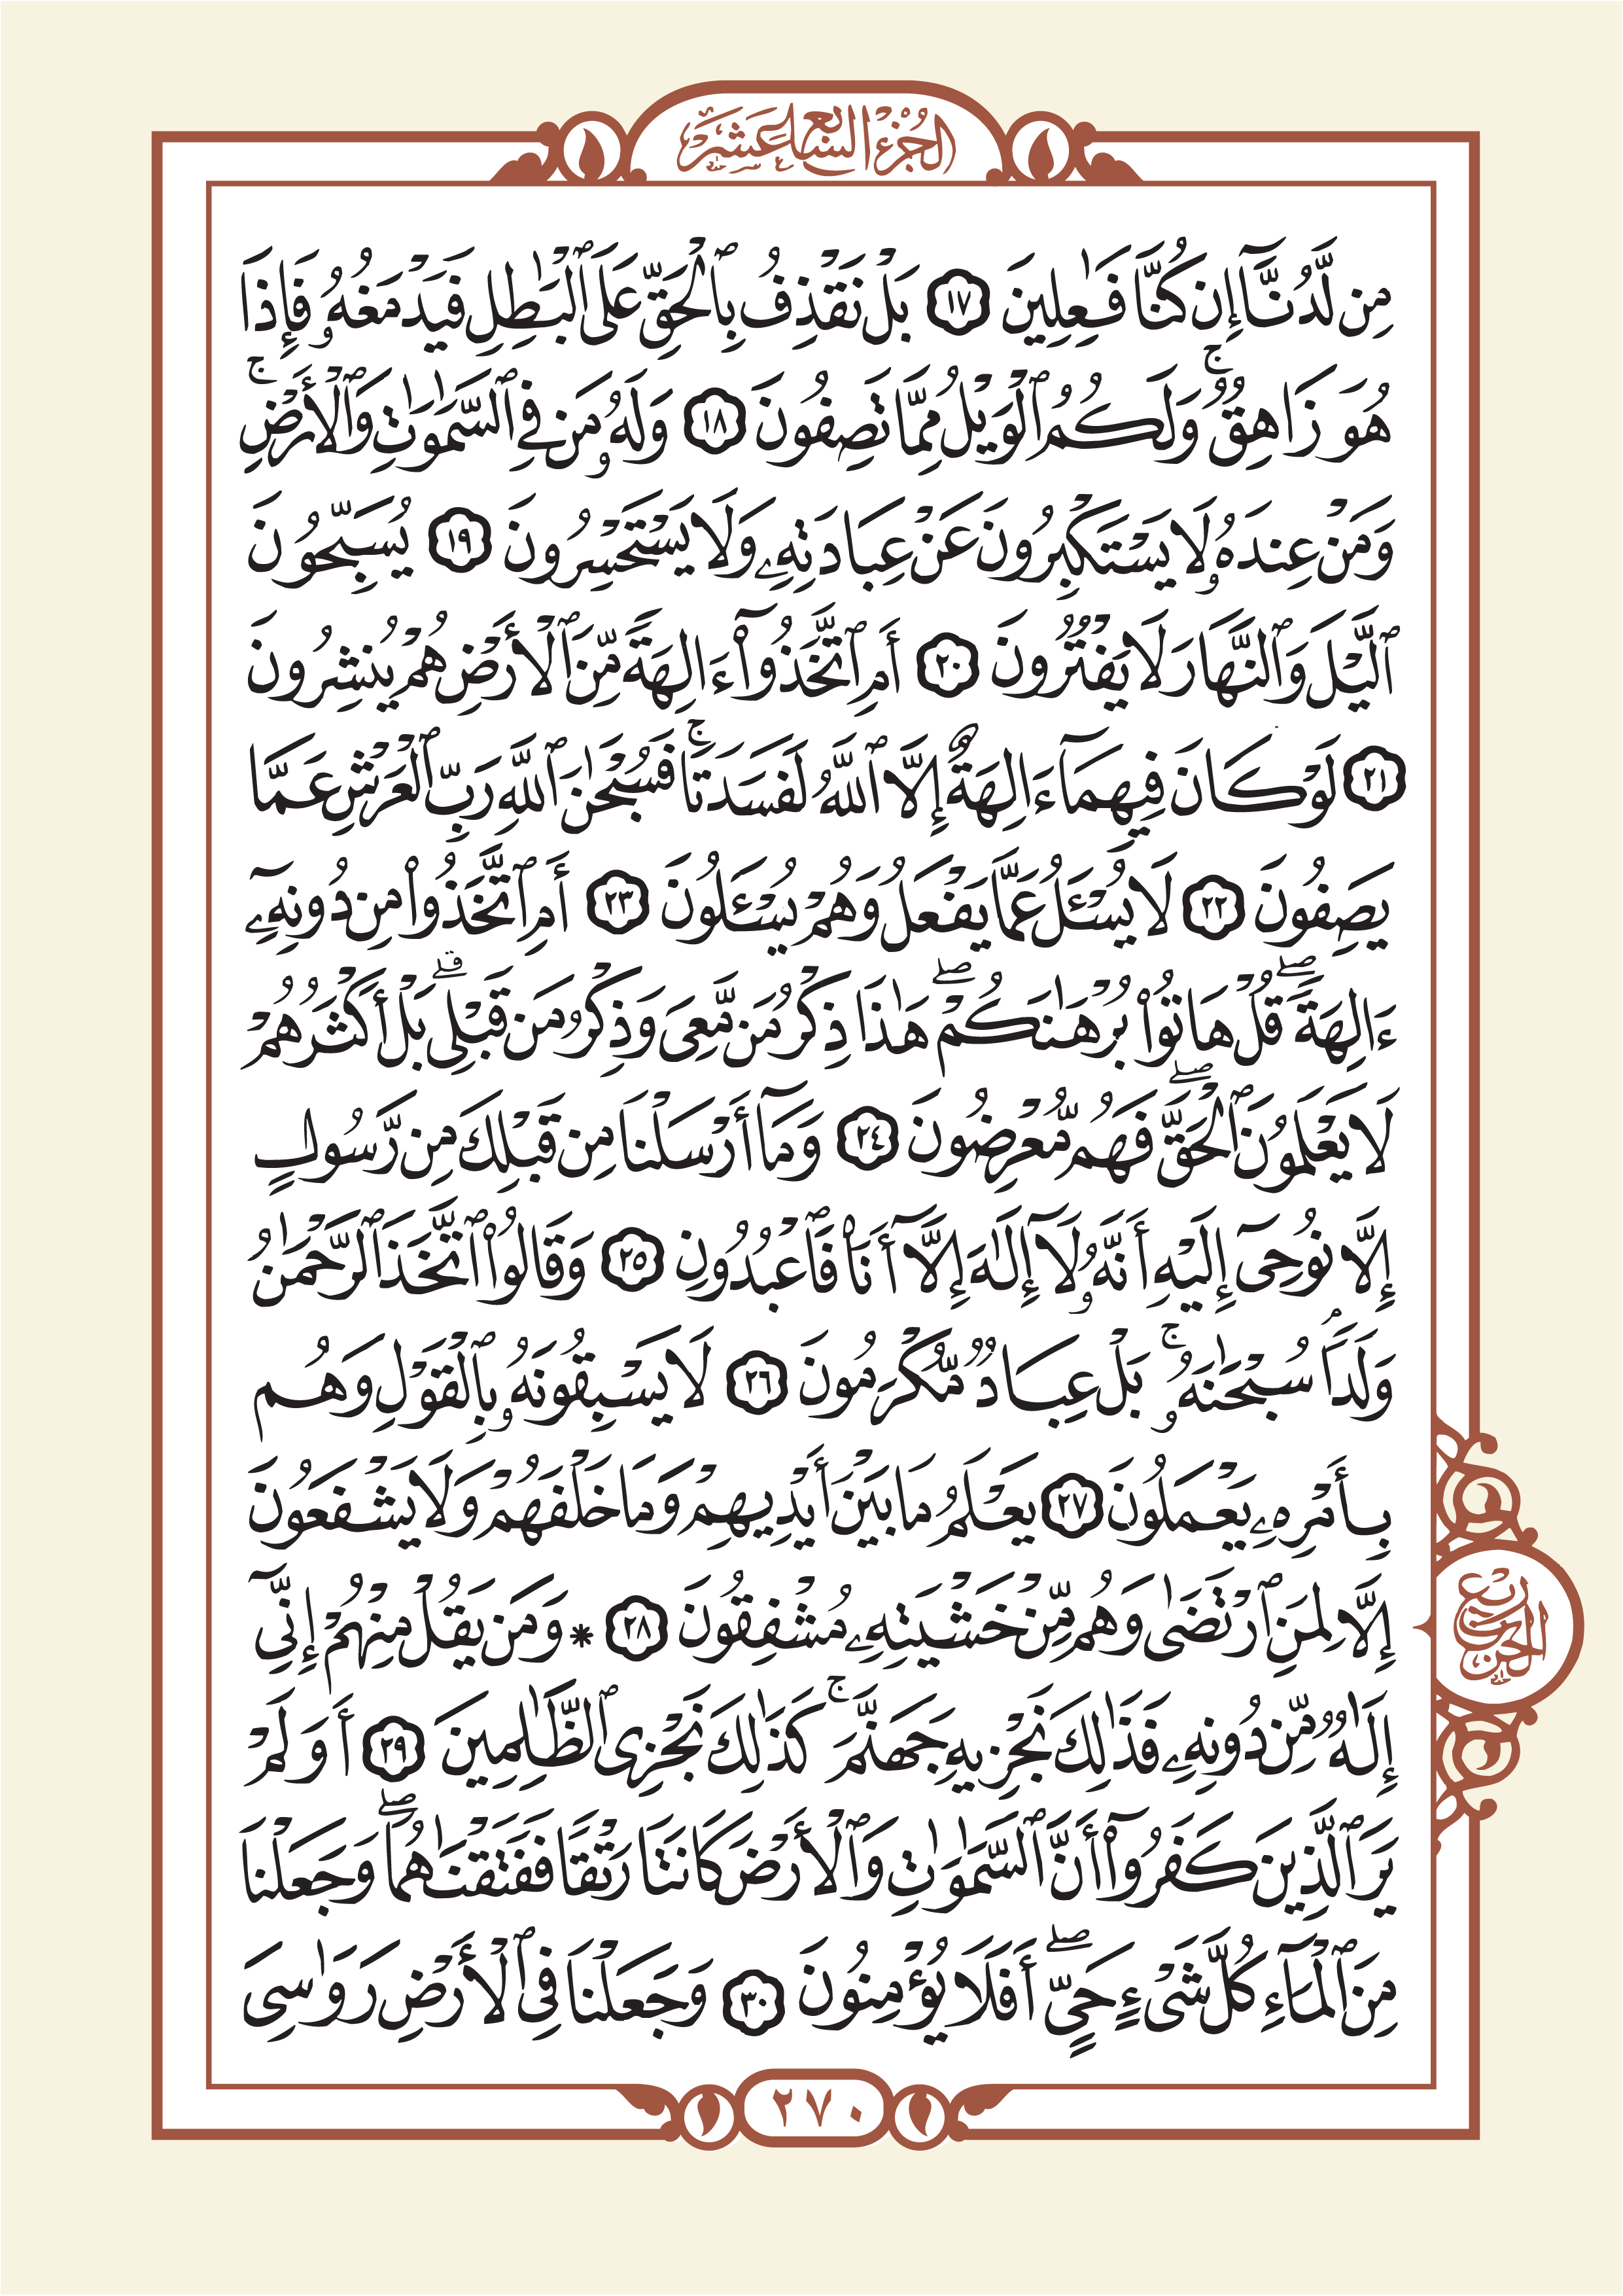 الجزء السابع عشر
مِن لَّدُنَّآ إِن كُنَّا فَٰعِلِينَ ١٧ بَلْ نَقْذِفُ بِٱلْحَقِّ عَلَى ٱلْبَٰطِلِ فَيَدْمَغُهُۥ فَإِذَا
هُوَ زَاهِقٌۚ وَلَكُمُ ٱلْوَيْلُ مِمَّا تَصِفُونَ ١٨ وَلَهُۥ مَن فِي ٱلسَّمَٰوَٰتِ وَٱلْأَرْضِۚ
وَمَنْ عِندَهُۥ لَا يَسْتَكْبِرُونَ عَنْ عِبَادَتِهِۦ وَلَا يَسْتَحْسِرُونَ ١٩ يُسَبِّحُونَ
ٱلَّيْلَ وَٱلنَّهَارَ لَا يَفْتُرُونَ ٢٠ أَمِ ٱتَّخَذُوٓاْ ءَالِهَةً مِّنَ ٱلْأَرْضِ هُمْ يُنشِرُونَ
٢١ لَوْ كَانَ فِيهِمَآ ءَالِهَةٌ إِلَّا ٱللَّهُ لَفَسَدَتَاۚ فَسُبْحَٰنَ ٱللَّهِ رَبِّ ٱلْعَرْشِ عَمَّا
يَصِفُونَ ٢٢ لَا يُسْـَٔلُ عَمَّا يَفْعَلُ وَهُمْ يُسْـَٔلُونَ ٢٣ أَمِ ٱتَّخَذُواْ مِن دُونِهِۦٓ
ءَالِهَةًۖ قُلْ هَاتُواْ بُرْهَٰنَكُمْۖ هَٰذَا ذِكْرُ مَن مَّعِىَ وَذِكْرُ مَن قَبْلِىۗ بَلْ أَكْثَرُهُمْ
لَا يَعْلَمُونَ ٱلْحَقَّۖ فَهُم مُّعْرِضُونَ ٢٤ وَمَآ أَرْسَلْنَا مِن قَبْلِكَ مِن رَّسُولٍ
إِلَّا نُوحِىٓ إِلَيْهِ أَنَّهُۥ لَآ إِلَٰهَ إِلَّآ أَنَا۠ فَٱعْبُدُونِ ٢٥ وَقَالُواْ ٱتَّخَذَ ٱلرَّحْمَٰنُ
وَلَدًاۗ سُبْحَٰنَهُۥۚ بَلْ عِبَادٌ مُّكْرَمُونَ ٢٦ لَا يَسْبِقُونَهُۥ بِٱلْقَوْلِ وَهُم
بِأَمْرِهِۦ يَعْمَلُونَ ٢٧ يَعْلَمُ مَا بَيْنَ أَيْدِيهِمْ وَمَا خَلْفَهُمْ وَلَا يَشْفَعُونَ
إِلَّا لِمَنِ ٱرْتَضَىٰ وَهُم مِّنْ خَشْيَتِهِۦ مُشْفِقُونَ ٢٨ * وَمَن يَقُلْ مِنْهُمْ إِنِّىٓ
إِلَٰهٌ مِّن دُونِهِۦ فَذَٰلِكَ نَجْزِيهِ جَهَنَّمَۚ كَذَٰلِكَ نَجْزِى ٱلظَّٰلِمِينَ ٢٩ أَوَلَمْ
يَرَ ٱلَّذِينَ كَفَرُوٓاْ أَنَّ ٱلسَّمَٰوَٰتِ وَٱلْأَرْضَ كَانَتَا رَتْقًا فَفَتَقْنَٰهُمَاۖ وَجَعَلْنَا
مِنَ ٱلْمَآءِ كُلَّ شَىْءٍ حَىٍّۖ أَفَلَا يُؤْمِنُونَ ٣٠ وَجَعَلْنَا فِى ٱلْأَرْضِ رَوَٰسِىَ
ربع الحزب
٢٧٠